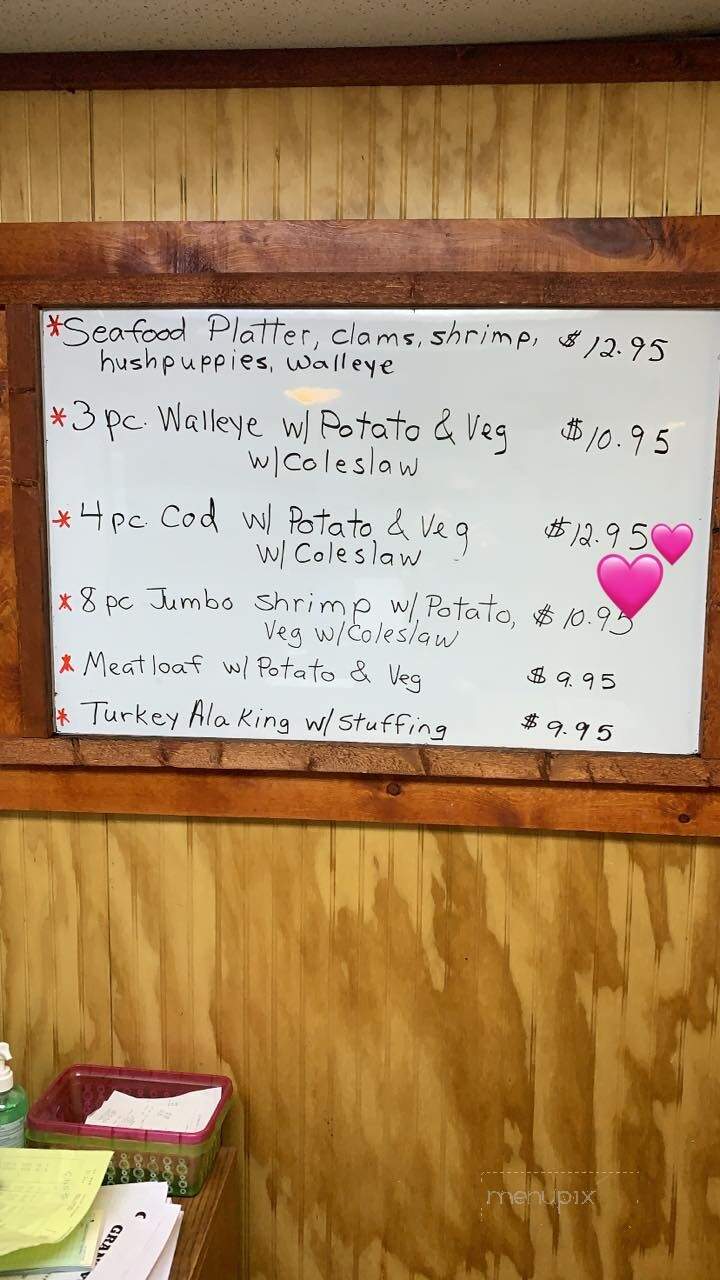 *Seafood Platter, clams, shrimp, $12.95
hushpuppies, walleye
*3 pc. Walleye w/ Potato & Veg $10.95
w/Coleslaw
*4 pc. Cod w/ Potato & Veg $12.95
w/ Coleslaw
*8 pc Jumbo Shrimp w/ Potato, $10.95
Veg w/Coleslaw
*Meatloaf w/ Potato & Veg $9.95
*Turkey Ala King w/ Stuffing $9.95
menupix